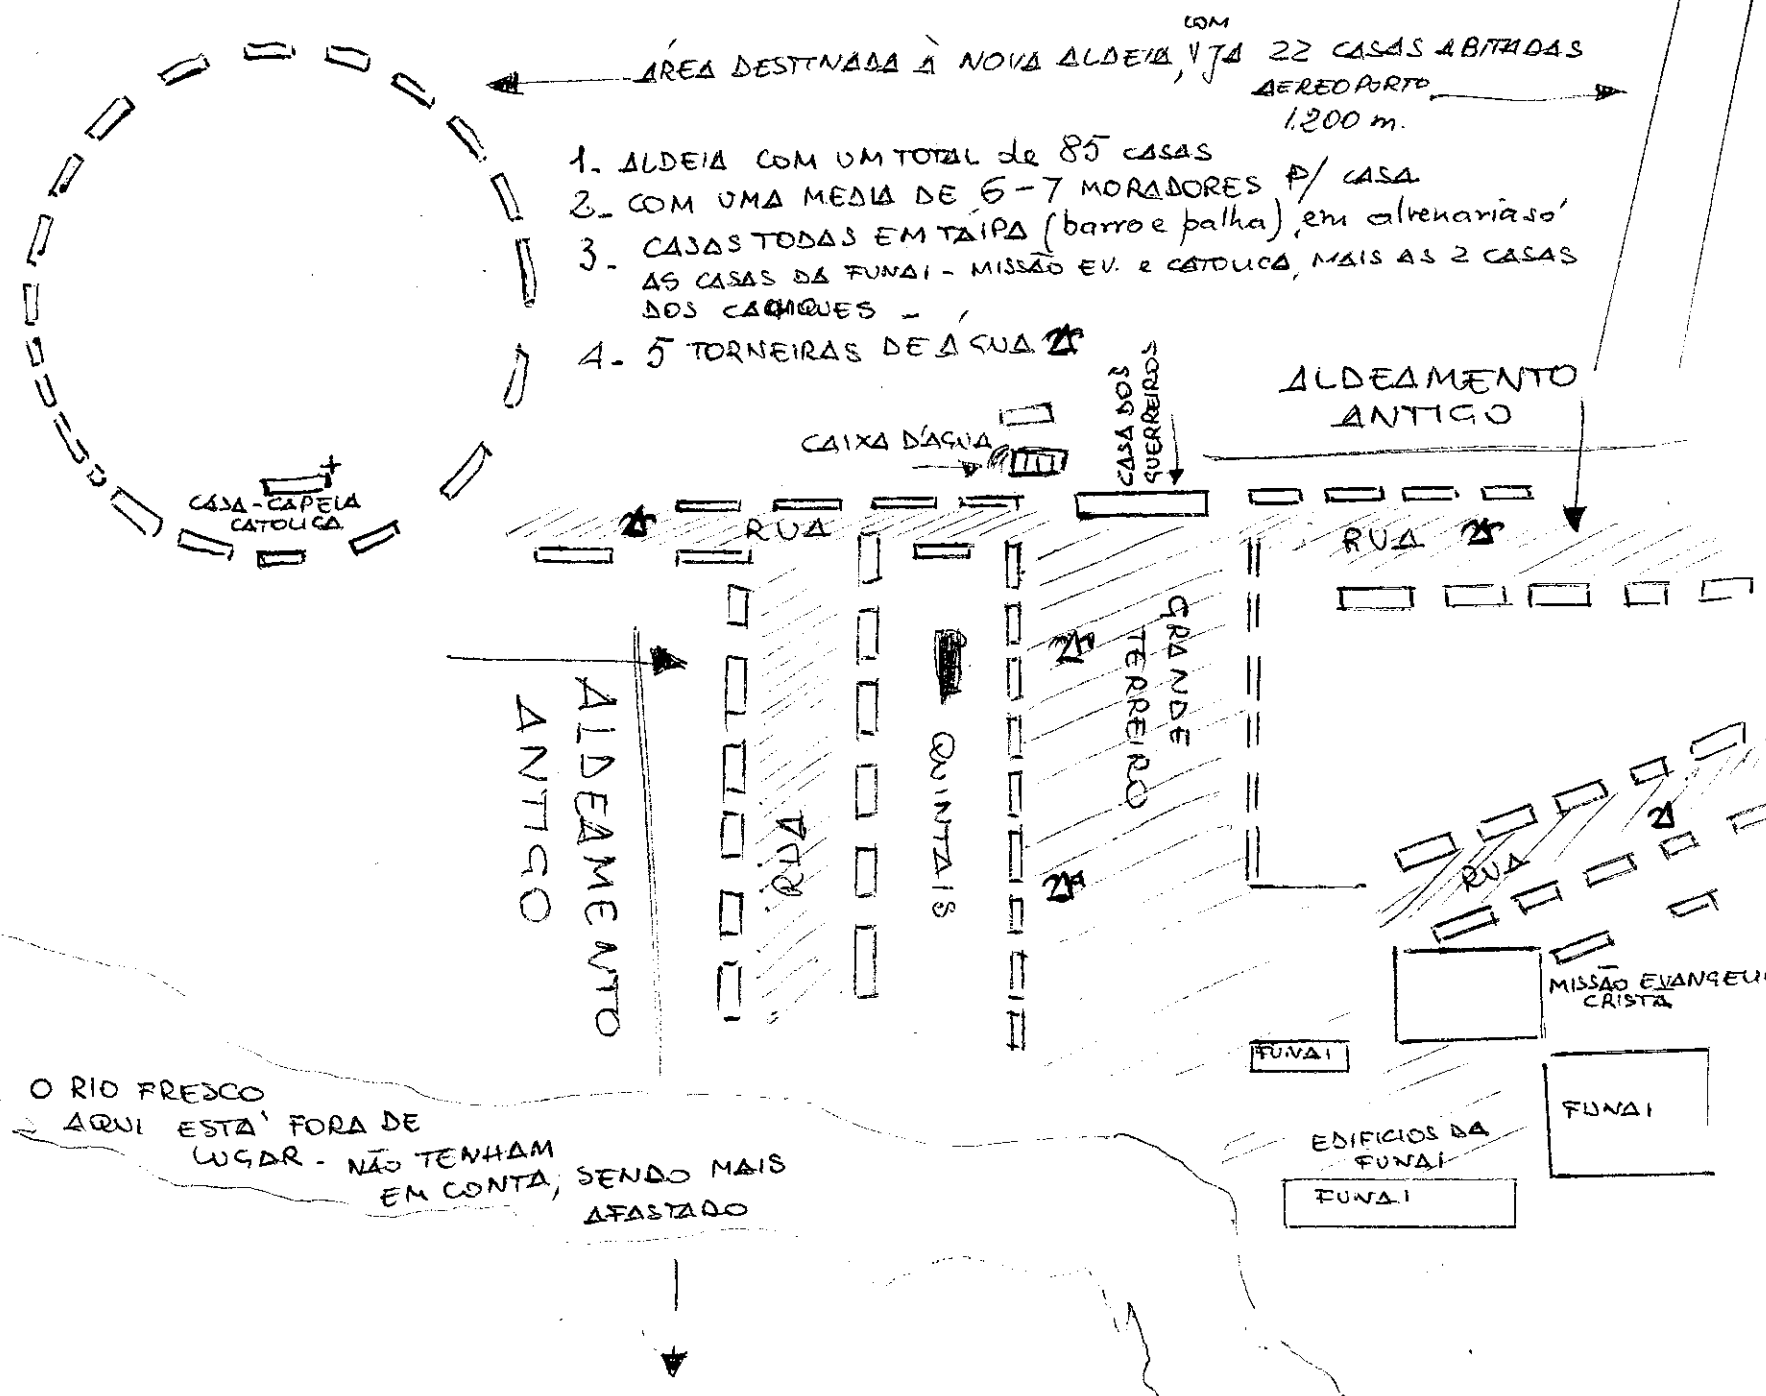 COM
ÁREA DESTINADA À NOVA ALDEIA, JÁ 22 CASAS ABITADAS
AEREOPORTO
1.200 m.
1. ALDEIA COM UM TOTAL de 85 CASAS
2. COM UMA MEDIA DE 6-7 MORADORES P/ CASA
3. CASAS TODAS EM TAIPA (barro e palha), em alvenaria só
AS CASAS DA FUNAI - MISSÃO EV. e CATOLICA, MAIS AS 2 CASAS
DOS CACIQUES -
4. 5 TORNEIRAS DE ÁGUA
CASA DOS
GUERREIROS
ALDEAMENTO
ANTIGO
CAIXA D'AGUA
CASA-CAPELA
CATOLICA
RUA
RUA
GRANDE
TERREIRO
ALDEAMENTO
ANTIGO
RUA
QUINTAIS
RUA
MISSÃO EVANGELI
CRISTA
FUNAI
FUNAI
EDIFICIOS DA
FUNAI
FUNAI
O RIO FRESCO
AQUI ESTA' FORA DE
LUGAR - NÃO TENHAM
EM CONTA, SENDO MAIS
AFASTADO